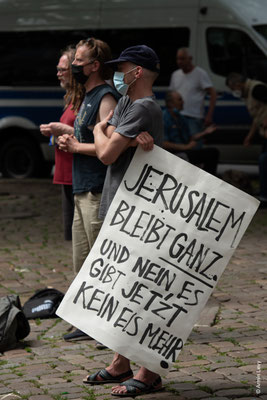 JERUSALEM
BLEIBT GANZ.
UND NEIN, ES
GIBT JETZT
KEIN EIS MEHR.